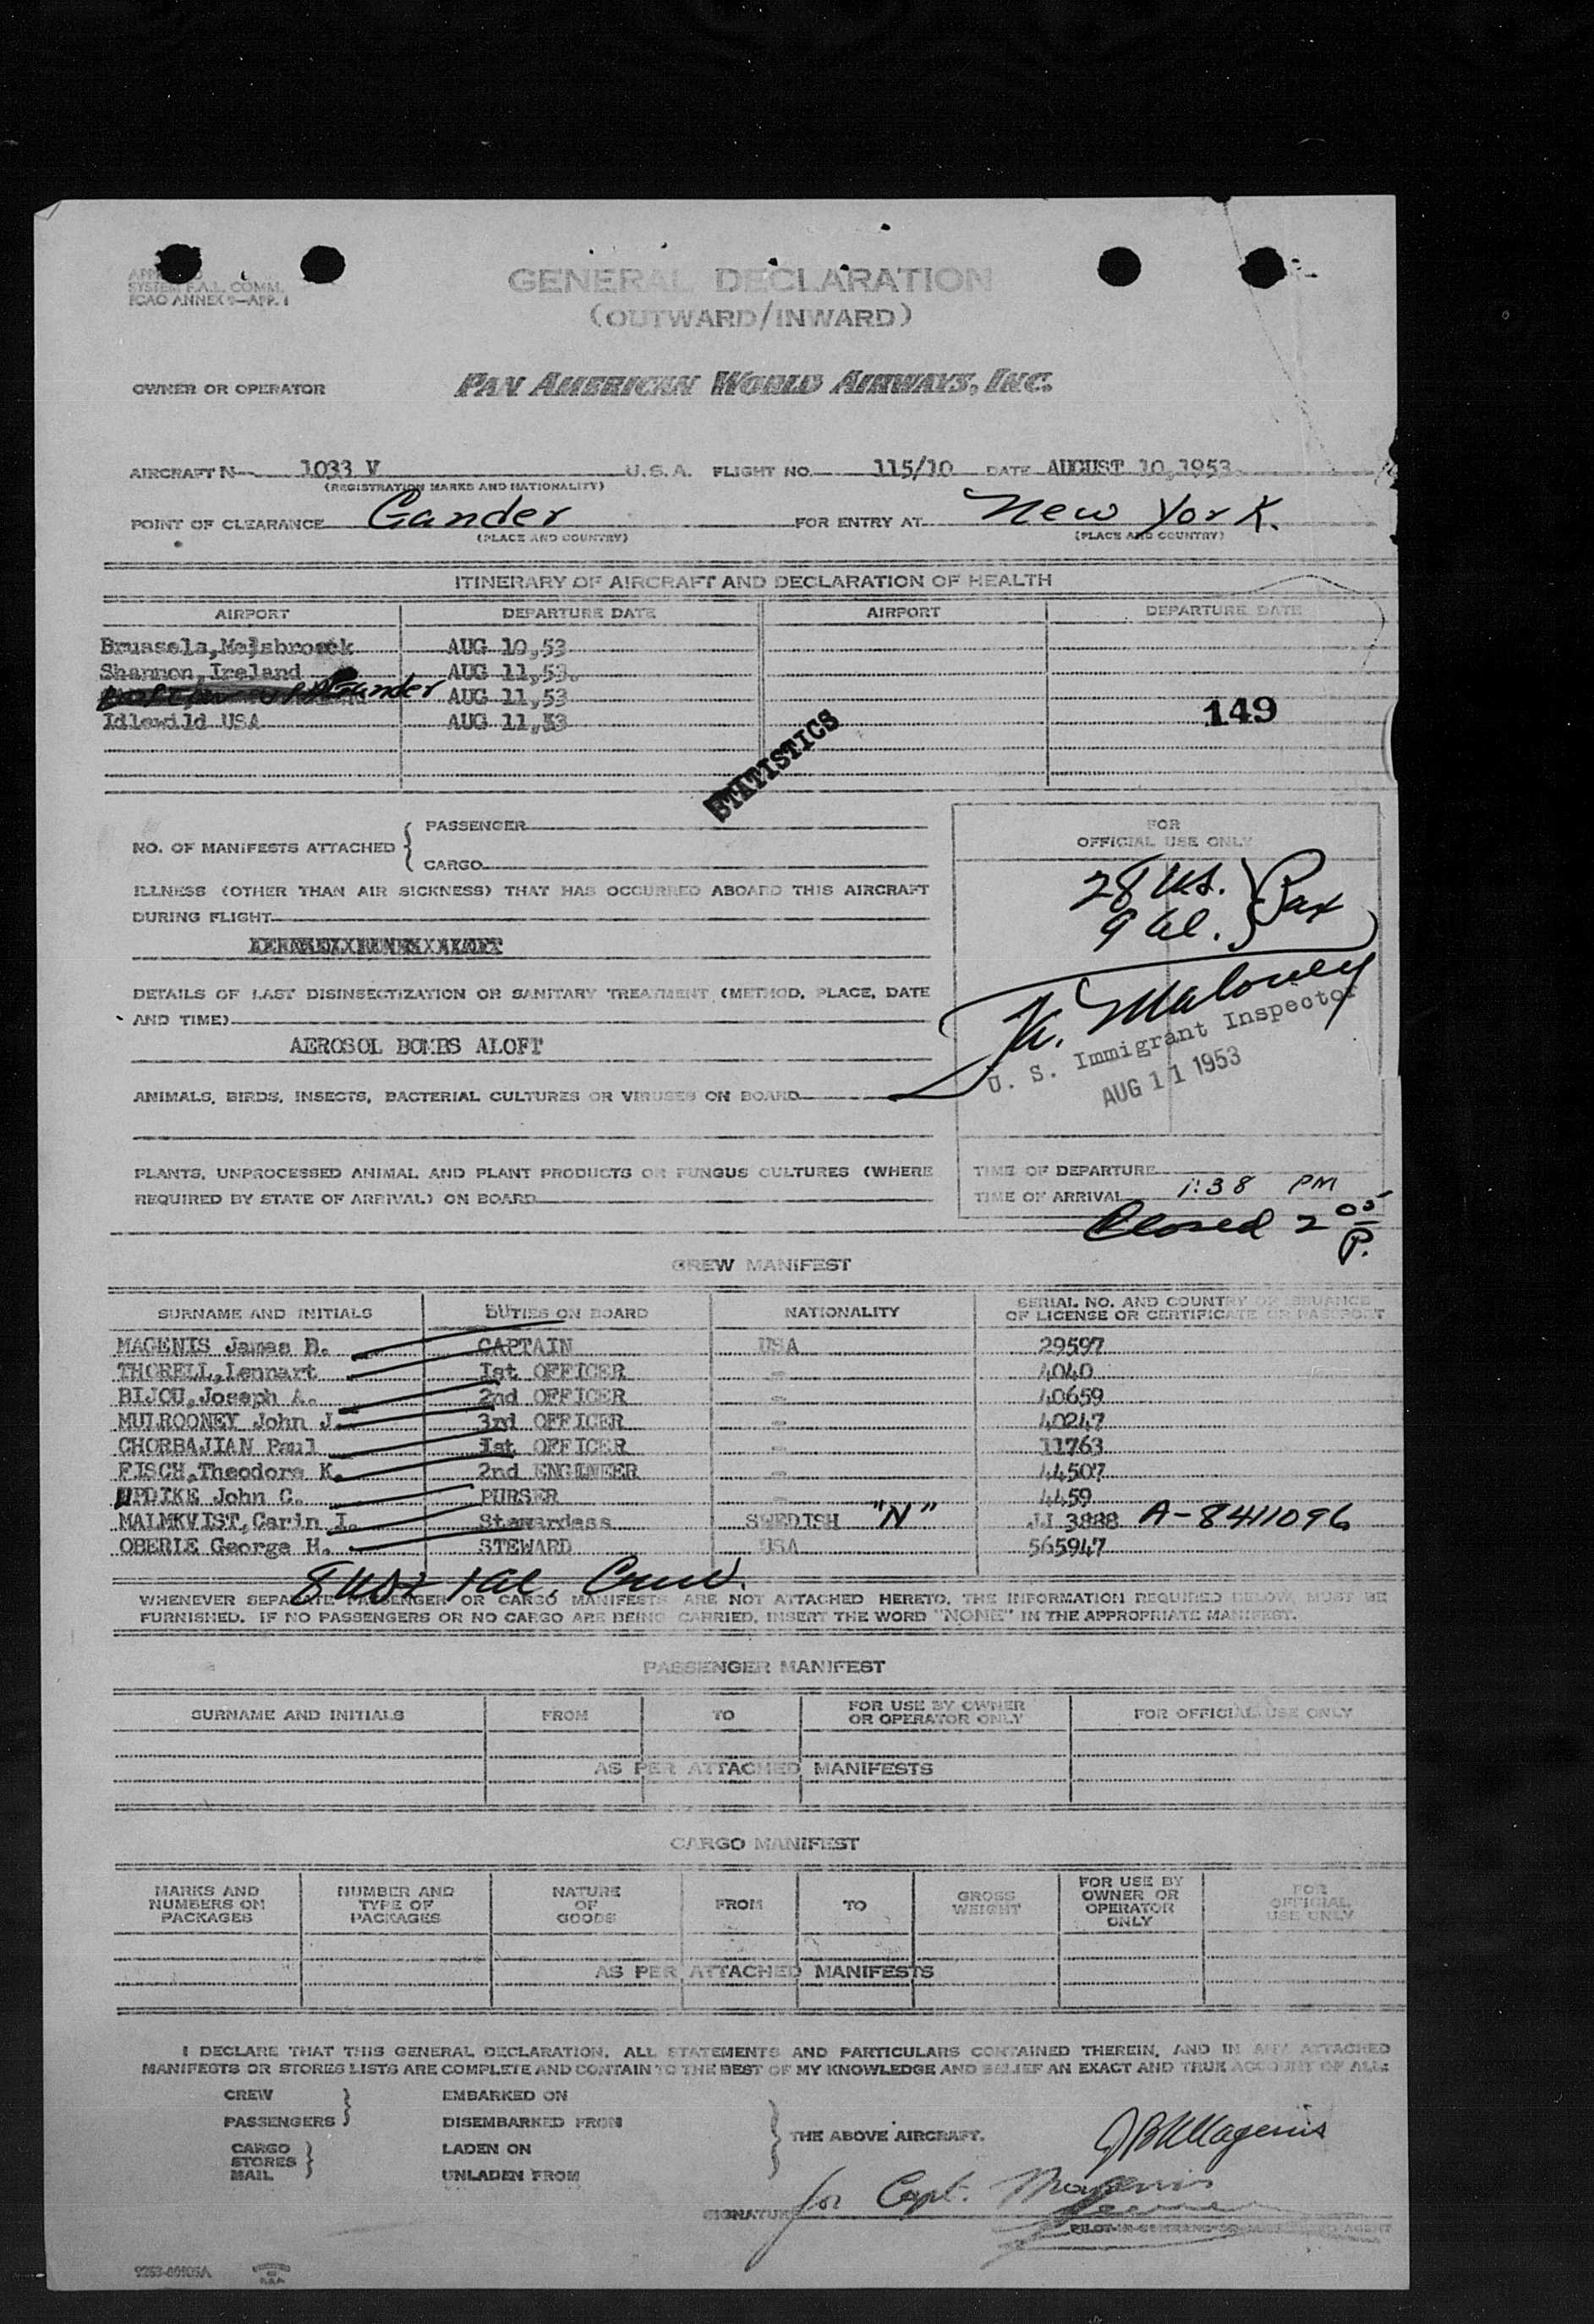 SYSTEM F.A.L. COMM.
ICAO ANNEX 9—APP. 1
GENERAL DECLARATION
(OUTWARD/INWARD)
OWNER OR OPERATOR PAN AMERICAN WORLD AIRWAYS, INC.
AIRCRAFT N 1033 V U.S.A. FLIGHT NO. 115/10 DATE AUGUST 10,1953
(REGISTRATION MARKS AND NATIONALITY)
POINT OF CLEARANCE Gander FOR ENTRY AT New York.
(PLACE AND COUNTRY) (PLACE AND COUNTRY)
ITINERARY OF AIRCRAFT AND DECLARATION OF HEALTH
AIRPORT DEPARTURE DATE AIRPORT DEPARTURE DATE
Brussels,Melsbroeck AUG 10,53
Shannon,Ireland AUG 11,53.
Gander AUG 11,53
Idlewild USA AUG 11,53
149
STATISTICS
NO. OF MANIFESTS ATTACHED { PASSENGER
CARGO
FOR
OFFICIAL USE ONLY
28 US. } Pax
9 al.
ILLNESS (OTHER THAN AIR SICKNESS) THAT HAS OCCURRED ABOARD THIS AIRCRAFT
DURING FLIGHT
DETAILS OF LAST DISINSECTIZATION OR SANITARY TREATMENT (METHOD, PLACE, DATE
AND TIME)
AEROSOL BOMBS ALOFT
Maloney
U. S. Immigrant Inspector
AUG 11 1953
ANIMALS, BIRDS, INSECTS, BACTERIAL CULTURES OR VIRUSES ON BOARD
PLANTS, UNPROCESSED ANIMAL AND PLANT PRODUCTS OR FUNGUS CULTURES (WHERE
REQUIRED BY STATE OF ARRIVAL) ON BOARD
TIME OF DEPARTURE
TIME OF ARRIVAL 1:38 PM
Closed 2 05 P.
CREW MANIFEST
SURNAME AND INITIALS DUTIES ON BOARD NATIONALITY SERIAL NO. AND COUNTRY OF ISSUANCE
OF LICENSE OR CERTIFICATE OR PASSPORT
MAGENIS James B. CAPTAIN USA 29597
THORELL,Lennart 1st OFFICER - 4040
BIJOU,Joseph A. 2nd OFFICER - 40659
MULROONEY John J. 3rd OFFICER - 40247
CHORBAJIAN Paul 1st OFFICER - 11763
FISCH,Theodore K. 2nd ENGINEER - 44507
UPDIKE John C. PURSER - 4459
MALMKVIST,Carin I. Stewardess SWEDISH "N" JJ 3888 A-8411096
OBERLE George H. STEWARD USA 565947
8 US + 1 al. Crew.
WHENEVER SEPARATE PASSENGER OR CARGO MANIFESTS ARE NOT ATTACHED HERETO, THE INFORMATION REQUIRED BELOW MUST BE
FURNISHED. IF NO PASSENGERS OR NO CARGO ARE BEING CARRIED, INSERT THE WORD "NONE" IN THE APPROPRIATE MANIFEST.
PASSENGER MANIFEST
SURNAME AND INITIALS FROM TO FOR USE BY OWNER
OR OPERATOR ONLY FOR OFFICIAL USE ONLY
AS PER ATTACHED MANIFESTS
CARGO MANIFEST
MARKS AND
NUMBERS ON
PACKAGES
NUMBER AND
TYPE OF
PACKAGES
NATURE
OF
GOODS
FROM
TO
GROSS
WEIGHT
FOR USE BY
OWNER OR
OPERATOR
ONLY
FOR
OFFICIAL
USE ONLY
AS PER ATTACHED MANIFESTS
I DECLARE THAT THIS GENERAL DECLARATION, ALL STATEMENTS AND PARTICULARS CONTAINED THEREIN, AND IN ANY ATTACHED
MANIFESTS OR STORES LISTS ARE COMPLETE AND CONTAIN TO THE BEST OF MY KNOWLEDGE AND BELIEF AN EXACT AND TRUE ACCOUNT OF ALL:
CREW EMBARKED ON
PASSENGERS DISEMBARKED FROM
CARGO LADEN ON
STORES
MAIL UNLADEN FROM
THE ABOVE AIRCRAFT.
JB Magenis
SIGNATURE for Capt. Magenis
PILOT-IN-COMMAND OR AUTHORIZED AGENT